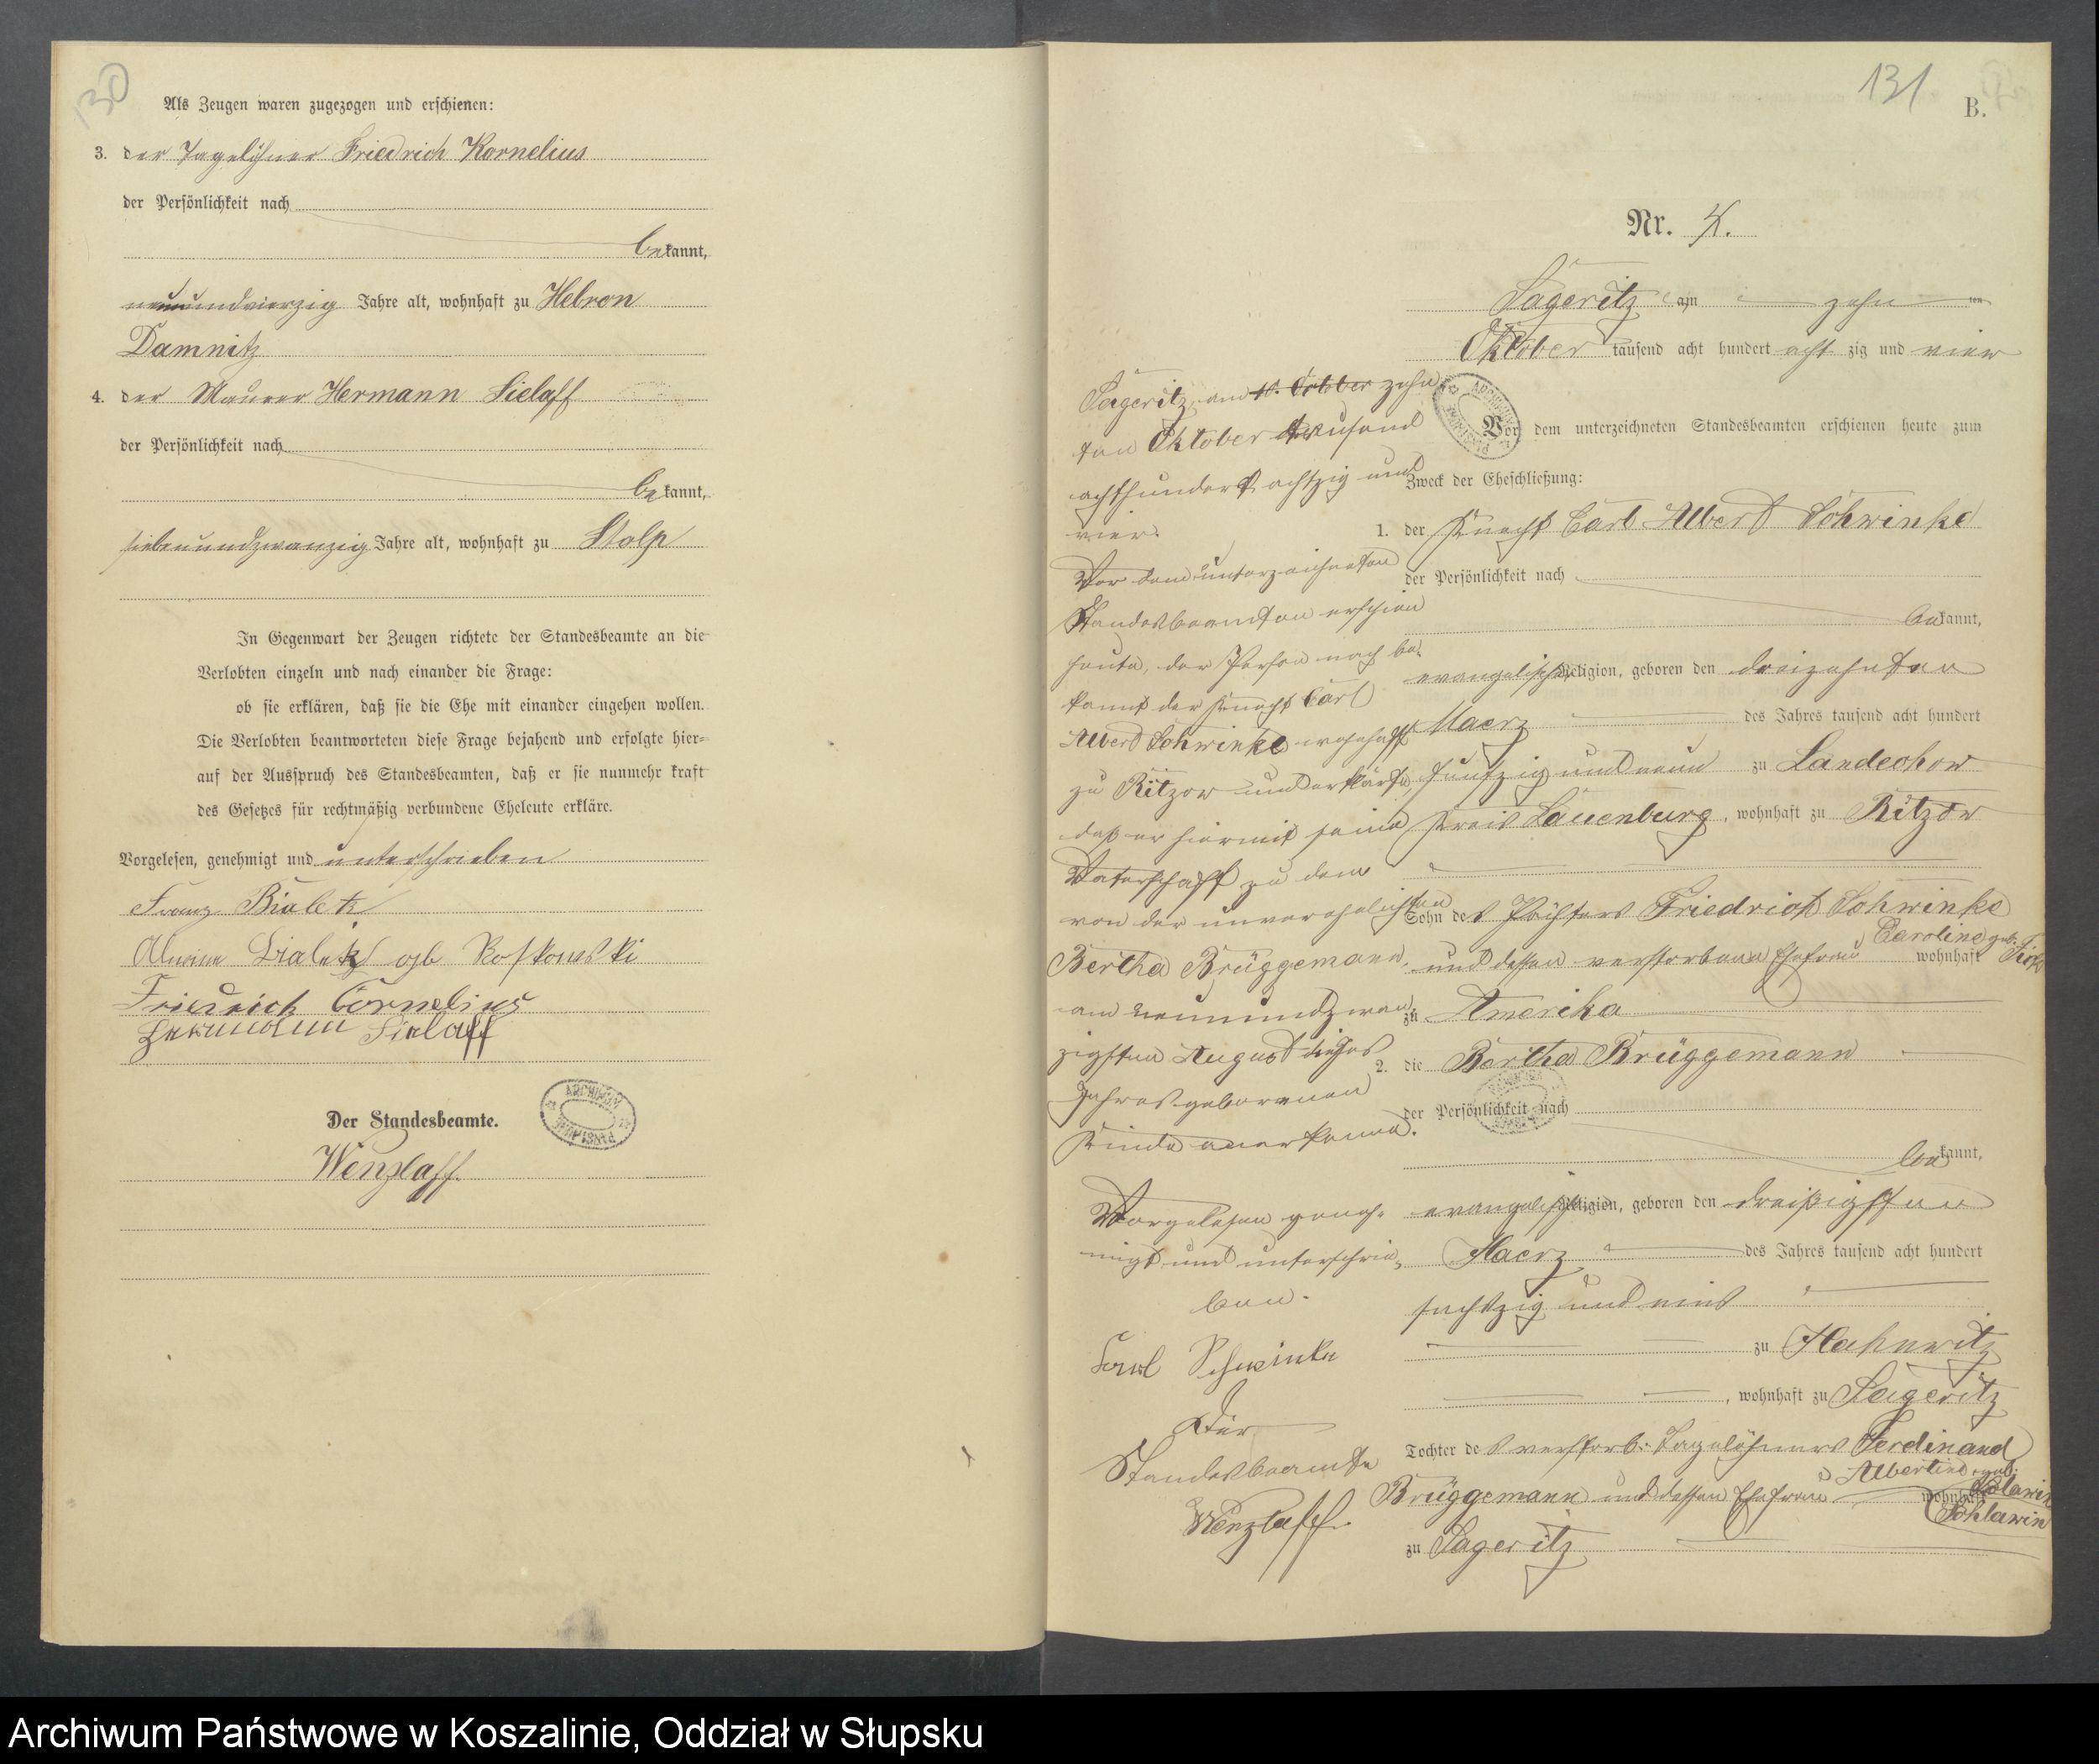 130
Als Zeugen waren zugezogen und erschienen:
3. der Tagelöhner Friedrich Kornelius
der Persönlichkeit nach
bekannt,
neunundvierzig Jahre alt, wohnhaft zu Hebron
Damnitz
4. der Maurer Hermann Sielaff
der Persönlichkeit nach
bekannt,
siebenundzwanzig Jahre alt, wohnhaft zu Stolp
In Gegenwart der Zeugen richtete der Standesbeamte an die
Verlobten einzeln und nach einander die Frage:
ob sie erklären, daß sie die Ehe mit einander eingehen wollen.
Die Verlobten beantworteten diese Frage bejahend und erfolgte hier-
auf der Ausspruch des Standesbeamten, daß er sie nunmehr kraft
des Gesetzes für rechtmäßig verbundene Eheleute erkläre.
Vorgelesen, genehmigt und unterschrieben
Franz Bialetz
Alwine Bialetz geb Koskowski
Friedrich Cornelius
Hermann Sielaff
Der Standesbeamte.
Wenzlaff.
131
B.
Nr. 4.
Sageritz am zehn ten
Oktober tausend acht hundert acht zig und vier
Vor dem unterzeichneten Standesbeamten erschienen heute zum
Zweck der Eheschließung:
1. der Knecht Carl Albert Schwinke
der Persönlichkeit nach
bekannt,
evangelischer Religion, geboren den dreizehnten
Maerz des Jahres tausend acht hundert
fünfzig und neun zu Landechow
Kreis Lauenburg, wohnhaft zu Ritzow
Sohn des Pächters Friedrich Schwinke
und dessen verstorbene Ehefrau Caroline geb.
wohnhaft
zu Amerika
2. die Bertha Brüggemann
der Persönlichkeit nach
bekannt,
evangelischer Religion, geboren den dreißigsten
Maerz des Jahres tausend acht hundert
sechszig und eins
zu Hahnwitz
, wohnhaft zu Sageritz
Tochter des verstorb. Tagelöhners Ferdinand
Brüggemann und dessen Ehefrau Albertine geb.
Schlawin wohnhaft
zu Sageritz
Sageritz, am 10. October zehn
ten Oktober tausend
achthundert achtzig und
vier.
Vor dem unterzeichneten
Standesbeamten erschien
heute, der Person nach be-
kannt der Knecht Carl
Albert Schwinke wohnhaft
zu Ritzow und erklärte,
daß er hiermit seine
Vaterschaft zu dem
von der unverehelichten
Bertha Brüggemann,
am neunundzwan-
zigsten August dieses
Jahres geborenen
Kinde anerkenne.
Vorgelesen geneh-
migt und unterschrie-
ben.
Carl Schwinke
Der
Standesbeamte
Wenzlaff.
Archiwum Państwowe w Koszalinie, Oddział w Słupsku